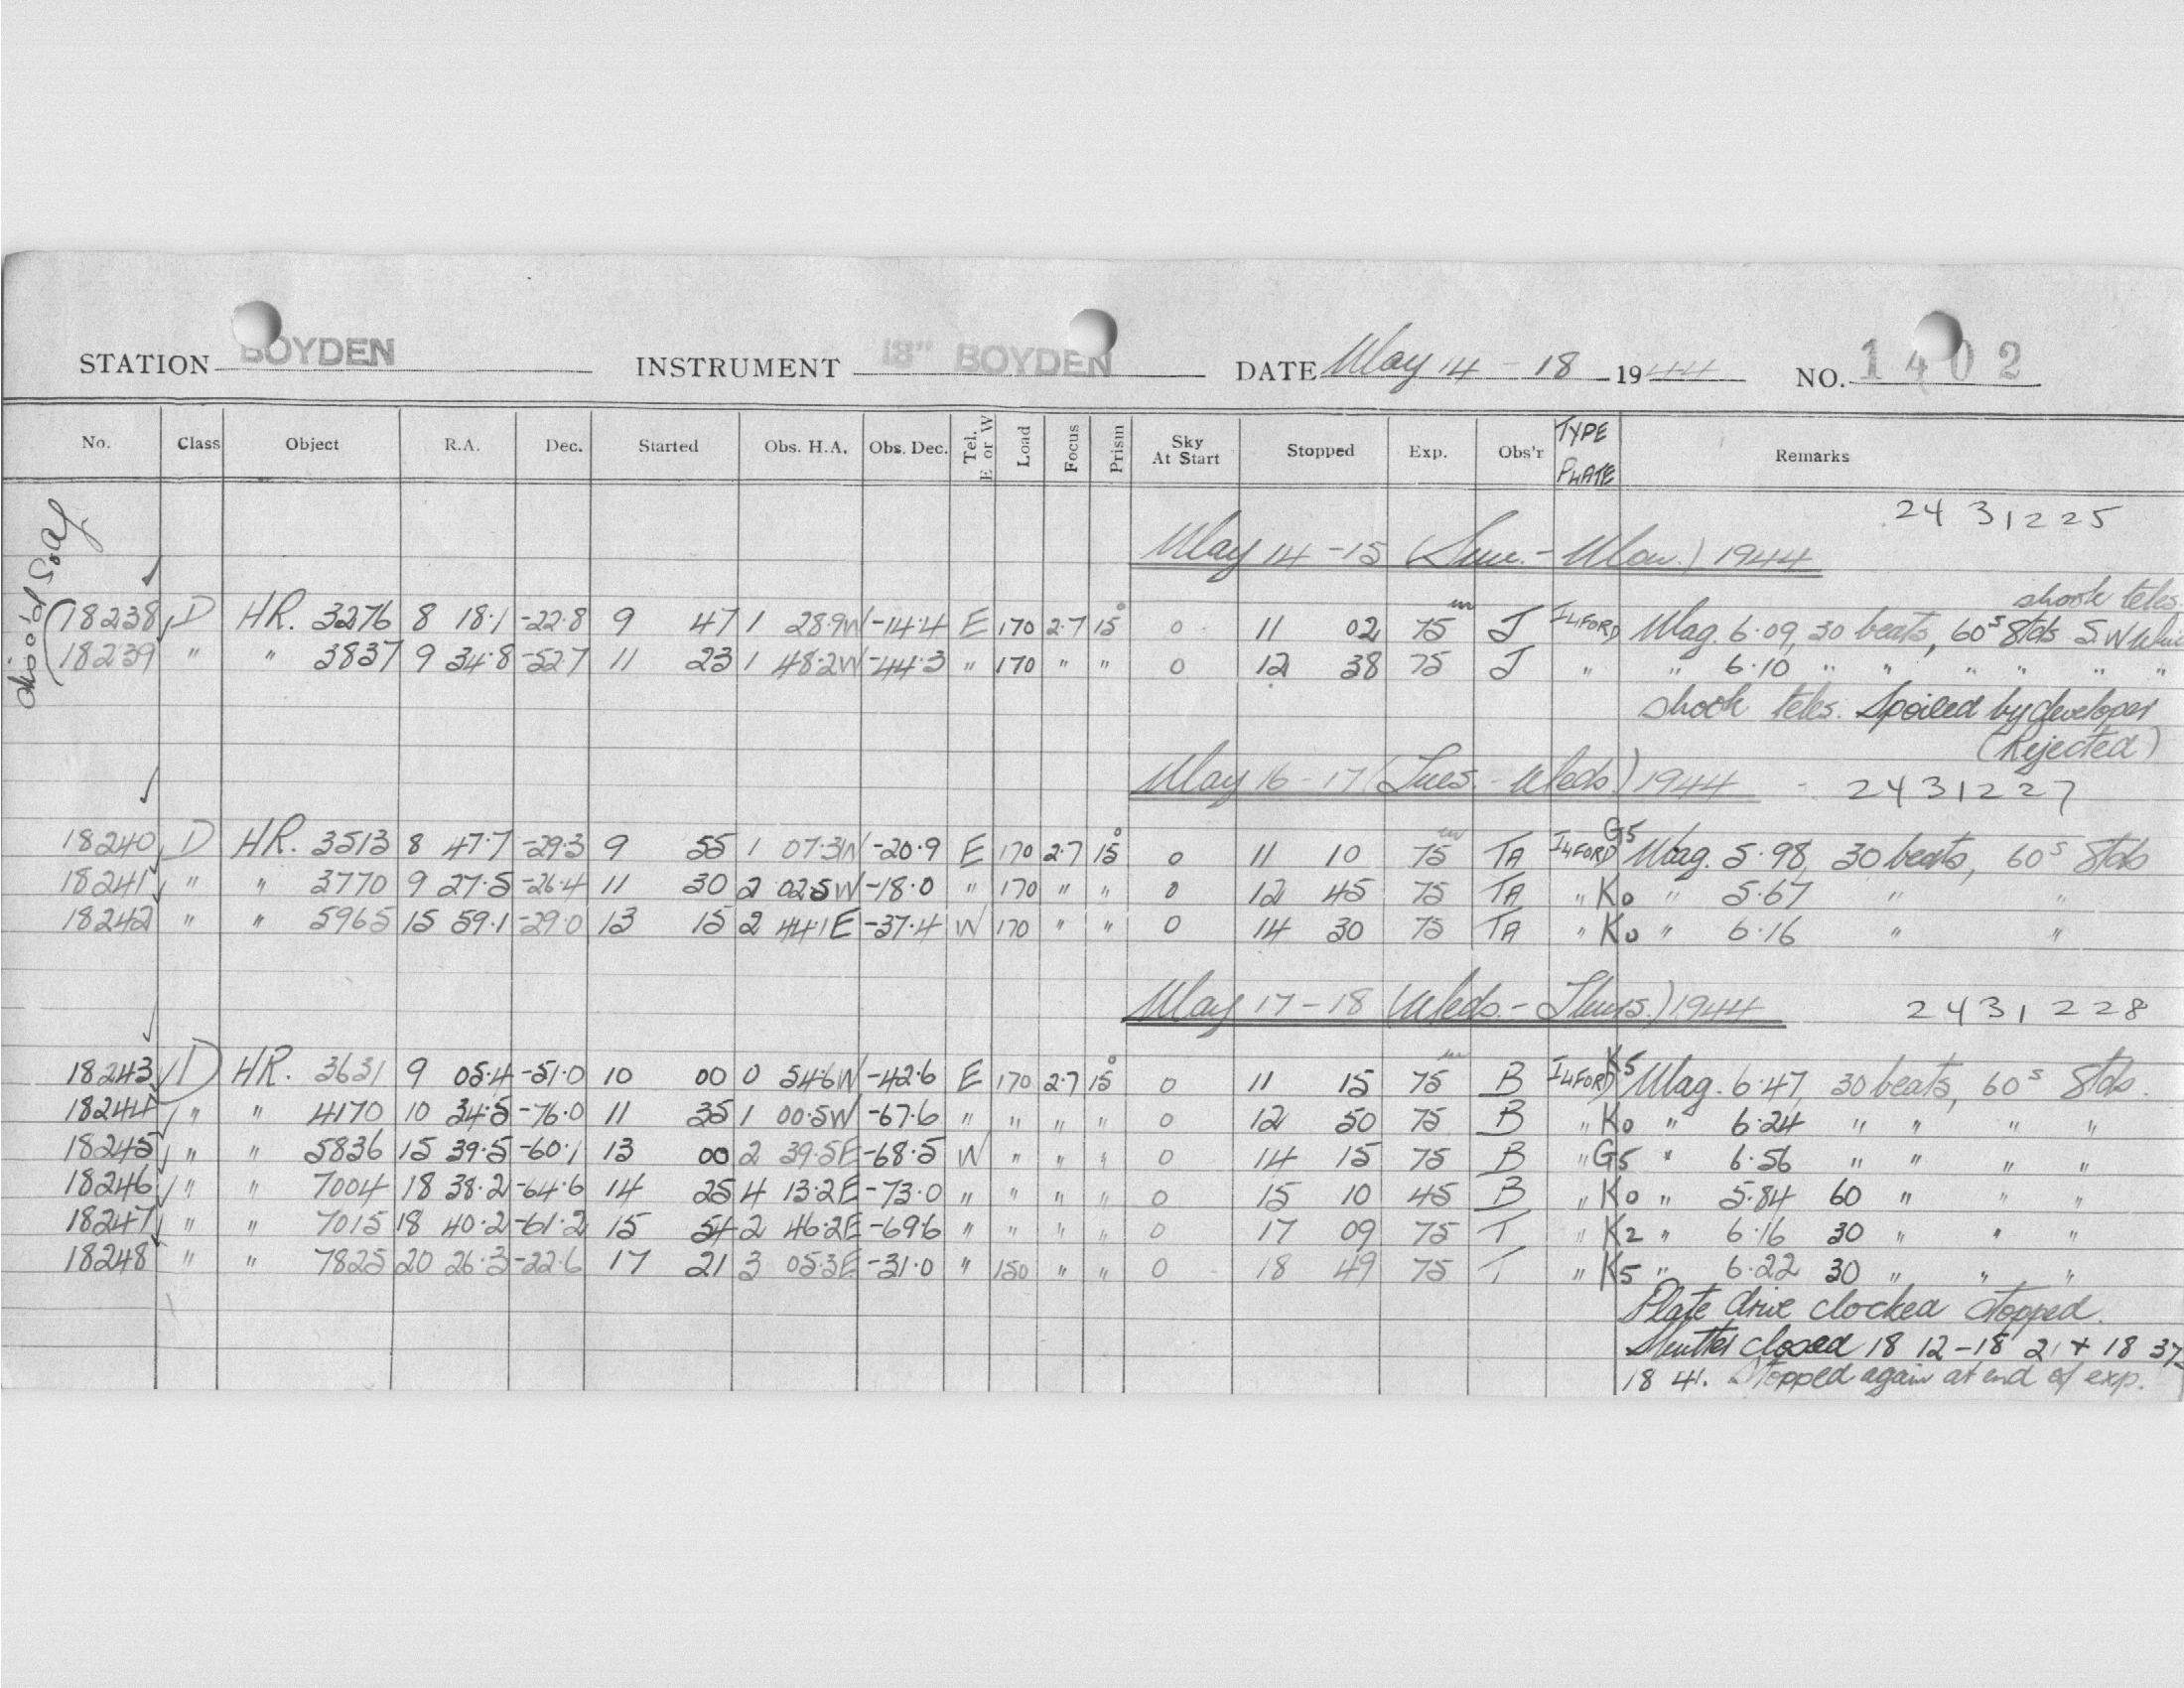 STATION BOYDEN INSTRUMENT 18" BOYDEN DATE May 14 - 18 1944 NO. 1402
No. Class Object R.A. Dec. Started Obs. H.A. Obs. Dec. Tel. E or W Load Focus Prism Sky At Start Stopped Exp. Obs'r TYPE PLATE Remarks
2431225
May 14-15 (Sun.-Mon.) 1944
shook teles.
18238 D HR. 3276 8 18.1 -22.8 9 47 1 28.9W -14.4 E 170 2.7 15° 0 11 02 75m J ILFORD Mag. 6.09, 30 beats, 60s Stds S.W
18239 " " 3837 9 34.8 -52.7 11 23 1 48.2W -44.3 " 170 " " 0 12 38 75 J " " 6.10 " " " " " "
shook teles. Spoiled by developer
(Rejected)
May 16-17 (Tues.-Weds) 1944 - 2431227
18240 D HR. 3513 8 47.7 -29.3 9 55 1 07.3W -20.9 E 170 2.7 15° 0 11 10 75m TA ILFORD G5 Mag. 5.98, 30 beats, 60s Stds
18241 " " 3770 9 27.5 -26.4 11 30 2 02.5W -18.0 " 170 " " 0 12 45 75 TA " K0 " 5.67 " "
18242 " " 5965 15 59.1 -29.0 13 15 2 44.1E -37.4 W 170 " " 0 14 30 75 TA " K0 " 6.16 " "
May 17-18 (Weds.-Thurs.) 1944 2431228
18243 D HR. 3631 9 05.4 -51.0 10 00 0 54.6W -42.6 E 170 2.7 15° 0 11 15 75m B ILFORD K5 Mag. 6.47, 30 beats, 60s Stds.
18244 " " 4170 10 34.5 -76.0 11 35 1 00.5W -67.6 " " " " 0 12 50 75 B " K0 " 6.24 " " " "
18245 " " 5836 15 39.5 -60.1 13 00 2 39.5E -68.5 W " " " 0 14 15 75 B " G5 " 6.56 " " " "
18246 " " 7004 18 38.2 -64.6 14 25 4 13.2E -73.0 " " " " 0 15 10 45 B " K0 " 5.84 60 " " "
18247 " " 7015 18 40.2 -61.2 15 54 2 46.2E -69.6 " " " " 0 17 09 75 T " K2 " 6.16 30 " " "
18248 " " 7825 20 26.3 -22.6 17 21 3 05.3E -31.0 " 150 " " 0 18 49 75 T " K5 " 6.22 30 " " "
Plate drive clocked stopped.
Shutter closed 18 12-18 21 + 18 37-
18 41. Stopped again at end of exp.